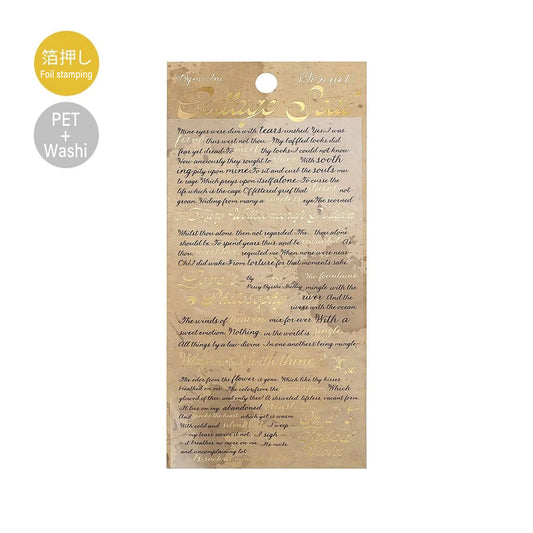 箔押し
Foil stamping
PET
+
Washi
Collage Seal
Mine eyes were dim with tears unshed. Yes, I was
thus wert not thou. My baffled looks did
fear yet dread To thy looks I could not know
How anxiously they sought to shine With sooth
ing pity upon mine. To sit and curb the souls mu-
te rage Which preys upon itself alone. To curse the
life which is the cage Of fettered grief that dares not
groan, Hiding from many a careless eye The scorned
Mary Wollstonecraft Godwin
Whilst thou alone, then not regarded. The thou alone
should be. To spend years thus and be rewarded As
thou, love requited me When none were near.
Oh! I did wake From torture for that moments sake.
Love's By The fountains
Percy Bysshe Shelley mingle with the
Philosophy river And the
rivers with the ocean
The winds of heaven mix for ever With a
sweet emotion Nothing in the world is single,
All things by a law divine In one another's being mingle
Why not I with thine?
The odor from the flower is gone, Which like thy kisses
breathed on me. The color from the Which
glowed of thee, and only thee! A shriveled, lifeless, vacant form,
It lies on my abandoned breast
And mocks the heart, which yet is warm,
With cold and silent rest. I weep
my tears revive it not. I sigh
it breathes no more on me. Its mute
and uncomplaining lot
On a
Faded
Violet